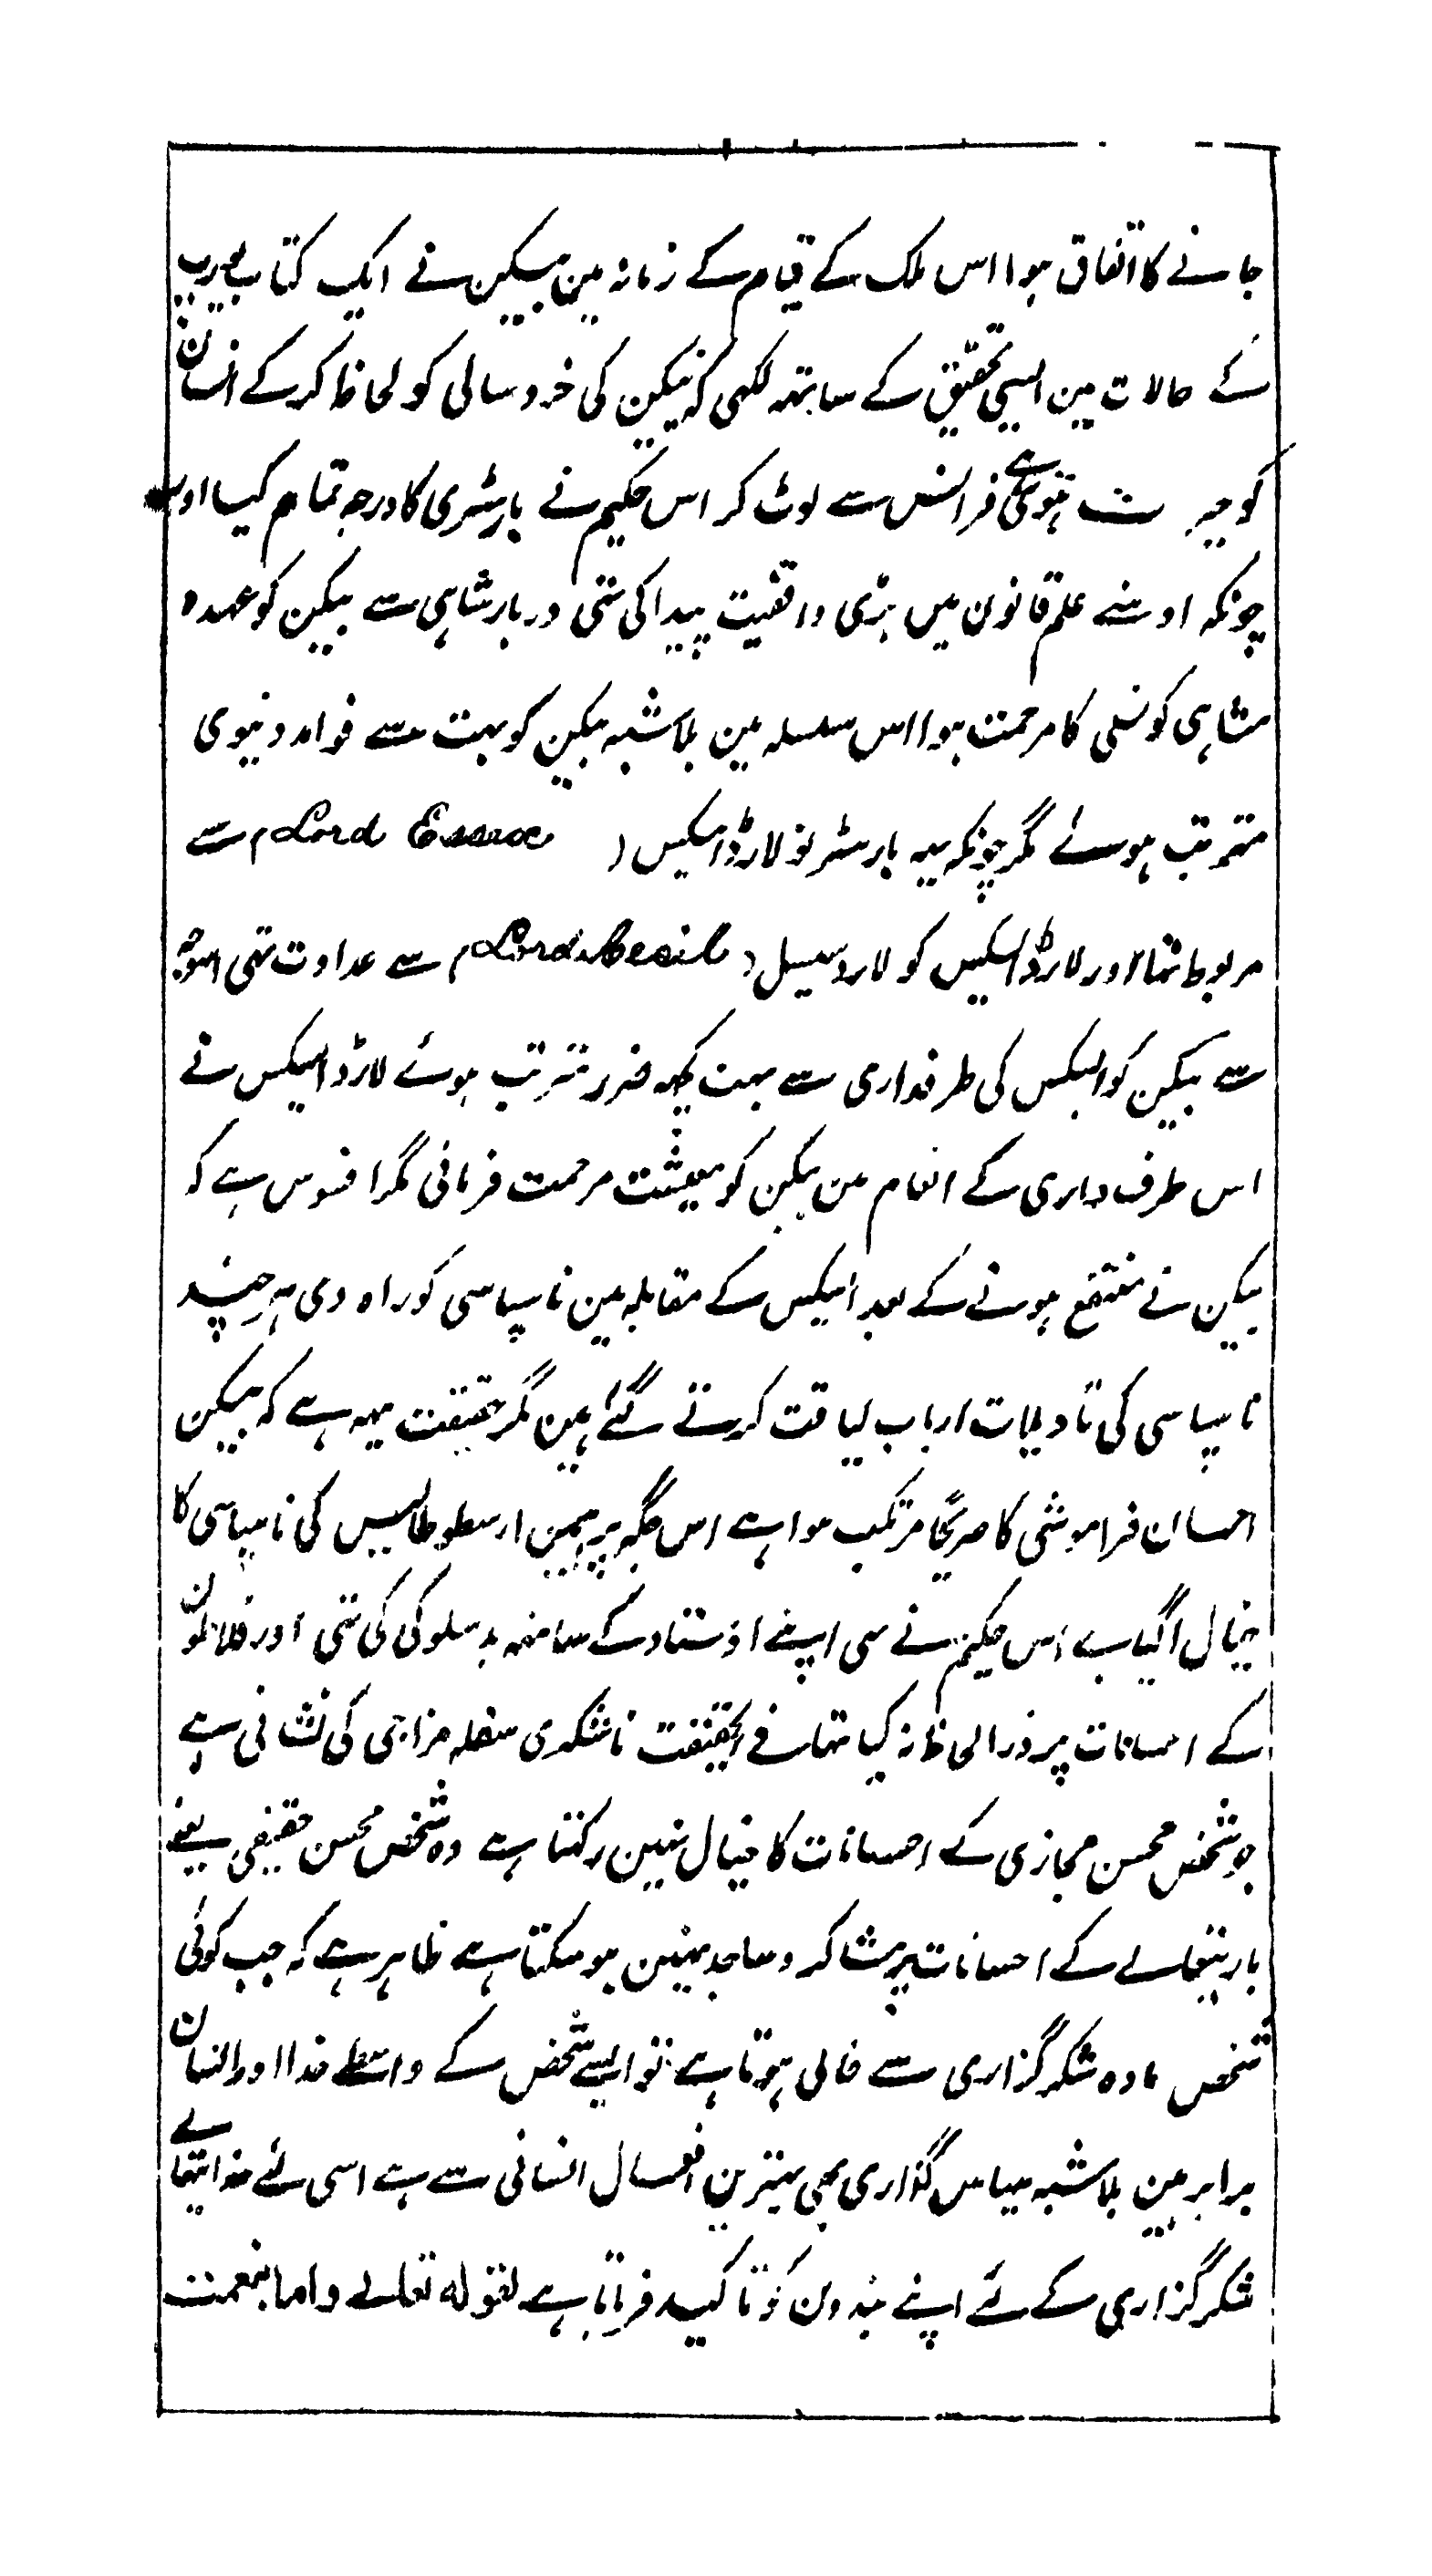 جانے کا اتفاق ہوا اس ملک کے قیام کے زمانہ مین بیکن نے ایک کتاب یورپ
کے حالات مین ایسی تحقیق کے ساتہہ لکہی کہ بیکن کی خرد سالی کو لحاظ کر کے انسان
کو حیرت ہوتی ہے فرانس سے لوٹ کر اس حکیم نے بارسٹری کا درجہ تمام کیا اور
چونکہ اوسنے علم قانون میں بڑی واقفیت پیدا کی تہی دربار شاہی سے بیکن کو عہدہ
شاہی کونسلی کا مرحمت ہوا اس سلسلہ مین بلا شبہ بیکن کو بہت سے فوائد دنیوی
مترتب ہوئے مگر چونکہ یہہ بارسٹر نو لارڈ اسکیس ( Lord Essex ) سے
مربوط تہا اور لارڈ اسکیس کو لارڈ سیسل ( Lord Cecil ) سے عداوت تہی اسوجہ
سے بیکن کو اسیکس کی طرفداری سے بہت کچہہ ضرر مترتب ہوئے لارڈ اسیکس نے
اس طرف داری کے انعام مین بیکن کو معیشت مرحمت فرمائی مگر افسوس ہے کہ
بیکن نے منتفع ہونے کے بعد اسیکس کے مقابلہ مین ناسپاسی کو راہ دی ہر چند
ناسپاسی کی تاویلات ارباب لیاقت کرتے گئے ہین مگر حقیقت یہہ ہے کہ بیکن
احسان فراموشی کا صریحًا مرتکب ہوا ہے اس جگہہ پر ہمین ارسطوطالیس کی ناسپاسی کا
خیال آگیا ہے اس حکیم نے بہی اپنے اوستاد کے ساتہہ بدسلوکی کی تہی اور فلاطون
کے احسانات پر ذرا لحاظ نہ کیا تہا فے الحقیقت ناشکری سفلہ مزاجی کی نشانی ہے
جو شخص محسن مجازی کے احسانات کا خیال نہین رکہتا ہے وہ شخص محسن حقیقی یعنے
باریتعالے کے احسانات پر شاکر و ساجد نہین ہو سکتا ہے ظاہر ہے کہ جب کوئی
شخص مادہ شکر گزاری سے خالی ہوتا ہے تو ایسے شخص کے واسطے خدا اور انسان
برابر ہین بلا شبہ سپاس گذاری بہی بہترین افعال انسانی سے ہے اسی لئے خدایتعالے
شکر گزاری کے لئے اپنے بندون کو تاکید فرماتا ہے لقولہ تعالے واما بنعمت